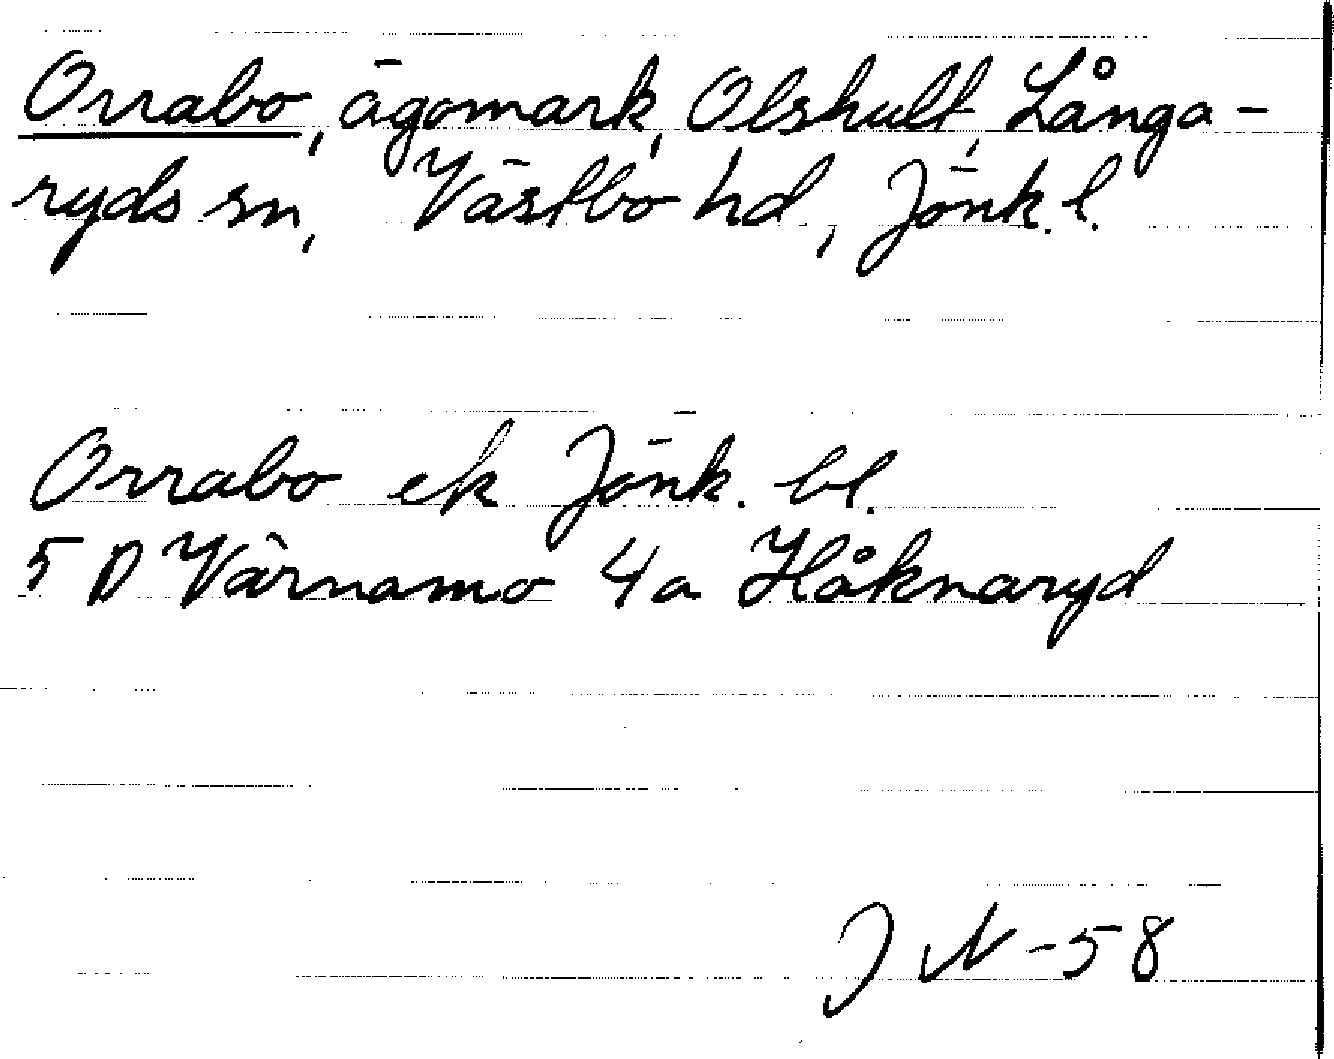 Orrabo, ägomark, Olshult, Långa-
ryds sn, Västbo hd, Jönk. l.
Orrabo ek Jönk. bl.
5 D Värnamo 4a Håknaryd
J N -58